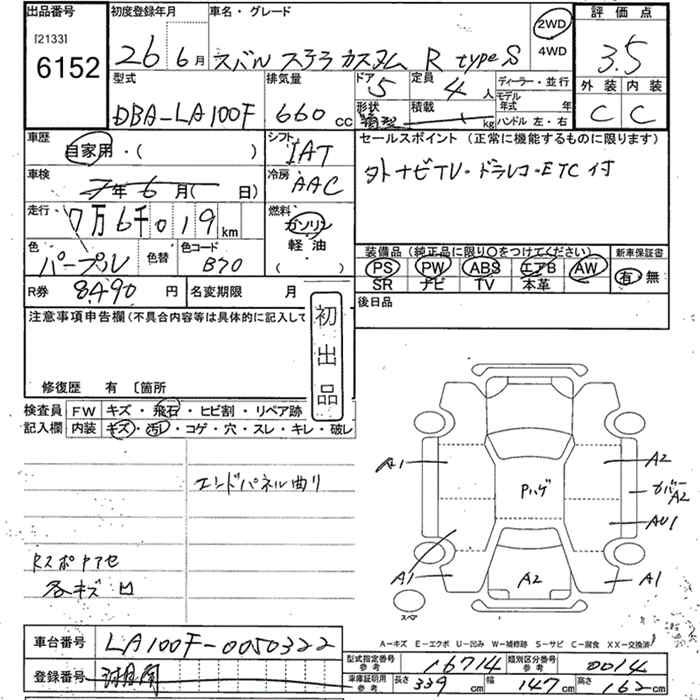 出品番号
[2133]
6152
初度登録年月
26 6月
車名・グレード
スバル ステラ カスタム R typeS
2WD
4WD
評価点
3.5
外装 内装
C C
型式
DBA-LA100F
排気量
660 CC
ドア 5
形状
定員 4人
積載 kg
ディーラー・並行
モデル年式 年
ハンドル 左・右
車歴
自家用・( )
シフト
IAT
車検
7年6月( 日)
冷房
AAC
走行
7万6千019km
燃料
ガソリン
軽・油
( )
色
パープル
色替
色コード
B70
R券 8,490円
名変期限 月
セールスポイント(正常に機能するものに限ります)
タト ナビTV・ドラレコ・ETC付
装備品(純正品に限り○をつけてください)
PS PW ABS エアB AW
SR ナビ TV 本革
新車保証書
有 無
後日品
注意事項申告欄(不具合内容等は具体的に記入して
初出品
修復歴 有 〔箇所
検査員記入欄
FW キズ・飛石・ヒビ割・リペア跡
内装 キズ・汚レ・コゲ・穴・スレ・キレ・破レ
エンドパネル曲り
Rスポ
各キズ凹
A1
A2
Pハゲ
カバー
A2
AU1
A1
A2
A1
スペア
A-キズ E-エクボ U-凹み W-補修跡 S-サビ C-腐食 XX-交換済
車台番号 LA100F-0050322
登録番号
型式指定番号 参考 16714
類別区分番号 参考 0014
車庫証明用 参考 長さ 339cm 幅 147cm 高さ 162cm